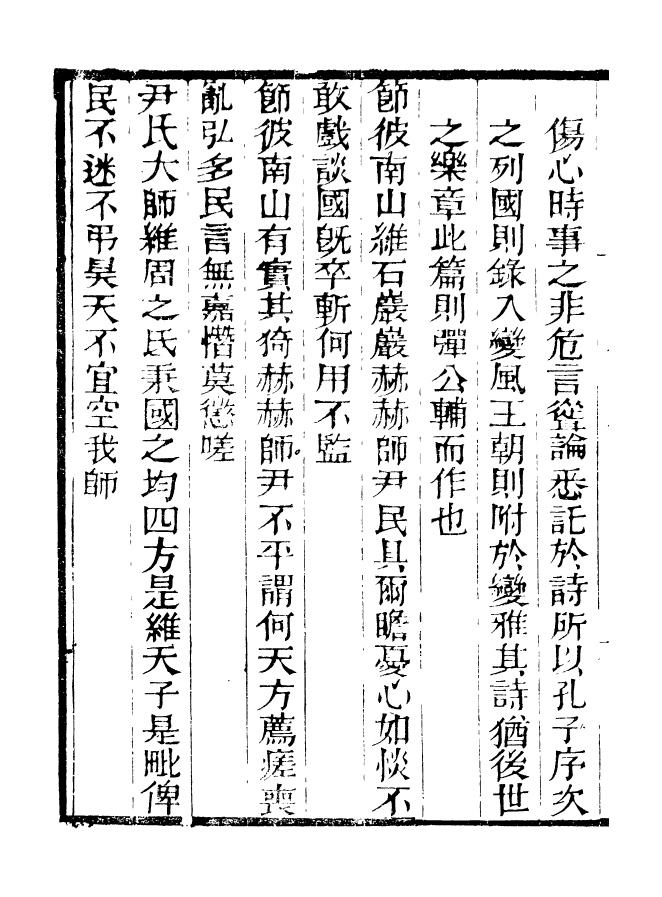 傷心時事之非危言從論悉託於詩所以孔子序次
之列國則錄入變風王朝則附於變雅其詩猶後世
之樂章此篇則彈公輔而作也
節彼南山維石巖巖赫赫師尹民具爾瞻憂心如惔不
敢戲談國旣卒斬何用不監
節彼南山有實其猗赫赫師尹不平謂何天方薦瘥喪
亂弘多民言無嘉憯莫懲嗟
尹氏大師維周之氐秉國之均四方是維天子是毗俾
民不迷不弔昊天不宜空我師